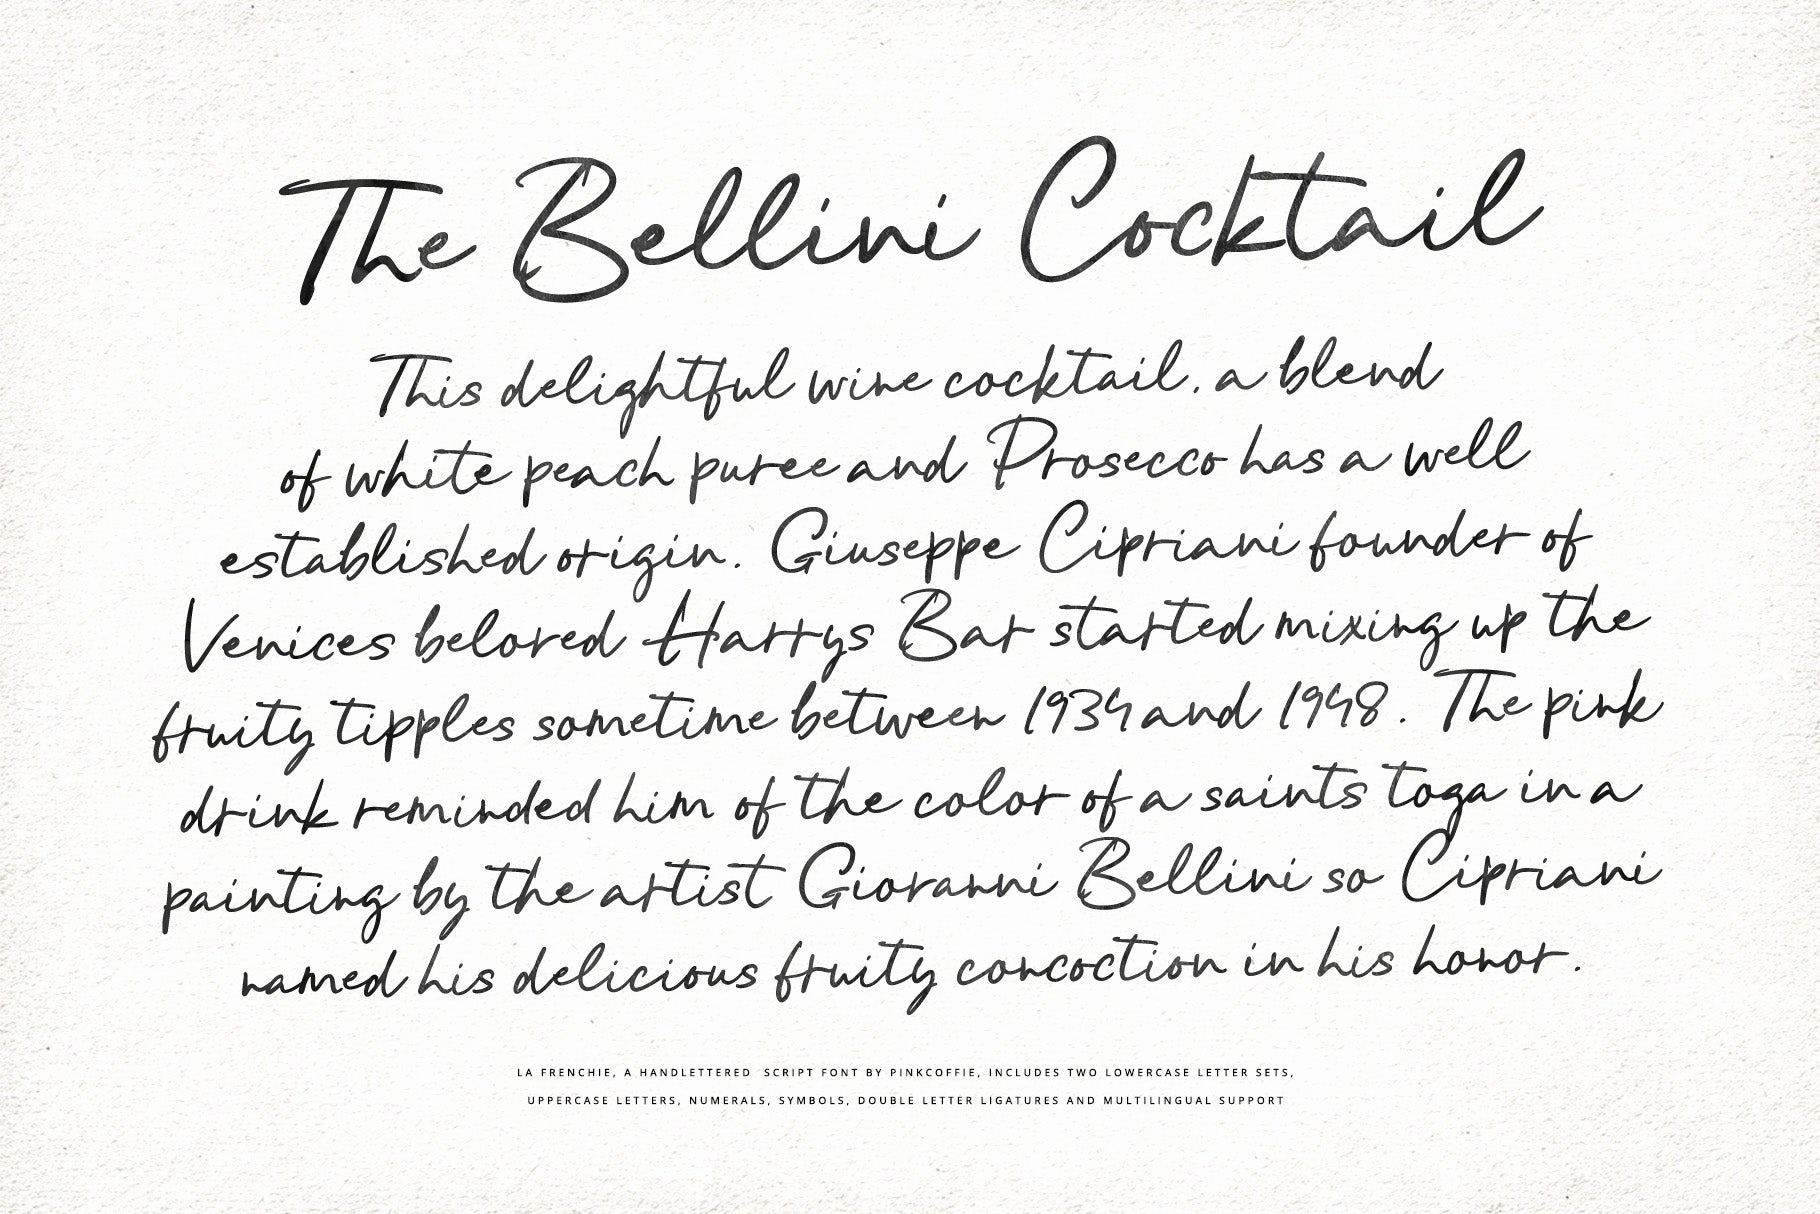 The Bellini Cocktail
This delightful wine cocktail, a blend
of white peach puree and Prosecco has a well
established origin. Giuseppe Cipriani founder of
Venices beloved Harrys Bar started mixing up the
fruity tipples sometime between 1934 and 1948. The pink
drink reminded him of the color of a saints toga in a
painting by the artist Giovanni Bellini so Cipriani
named his delicious fruity concoction in his honor.
LA FRENCHIE, A HANDLETTERED SCRIPT FONT BY PINKCOFFIE, INCLUDES TWO LOWERCASE LETTER SETS,
UPPERCASE LETTERS, NUMERALS, SYMBOLS, DOUBLE LETTER LIGATURES AND MULTILINGUAL SUPPORT